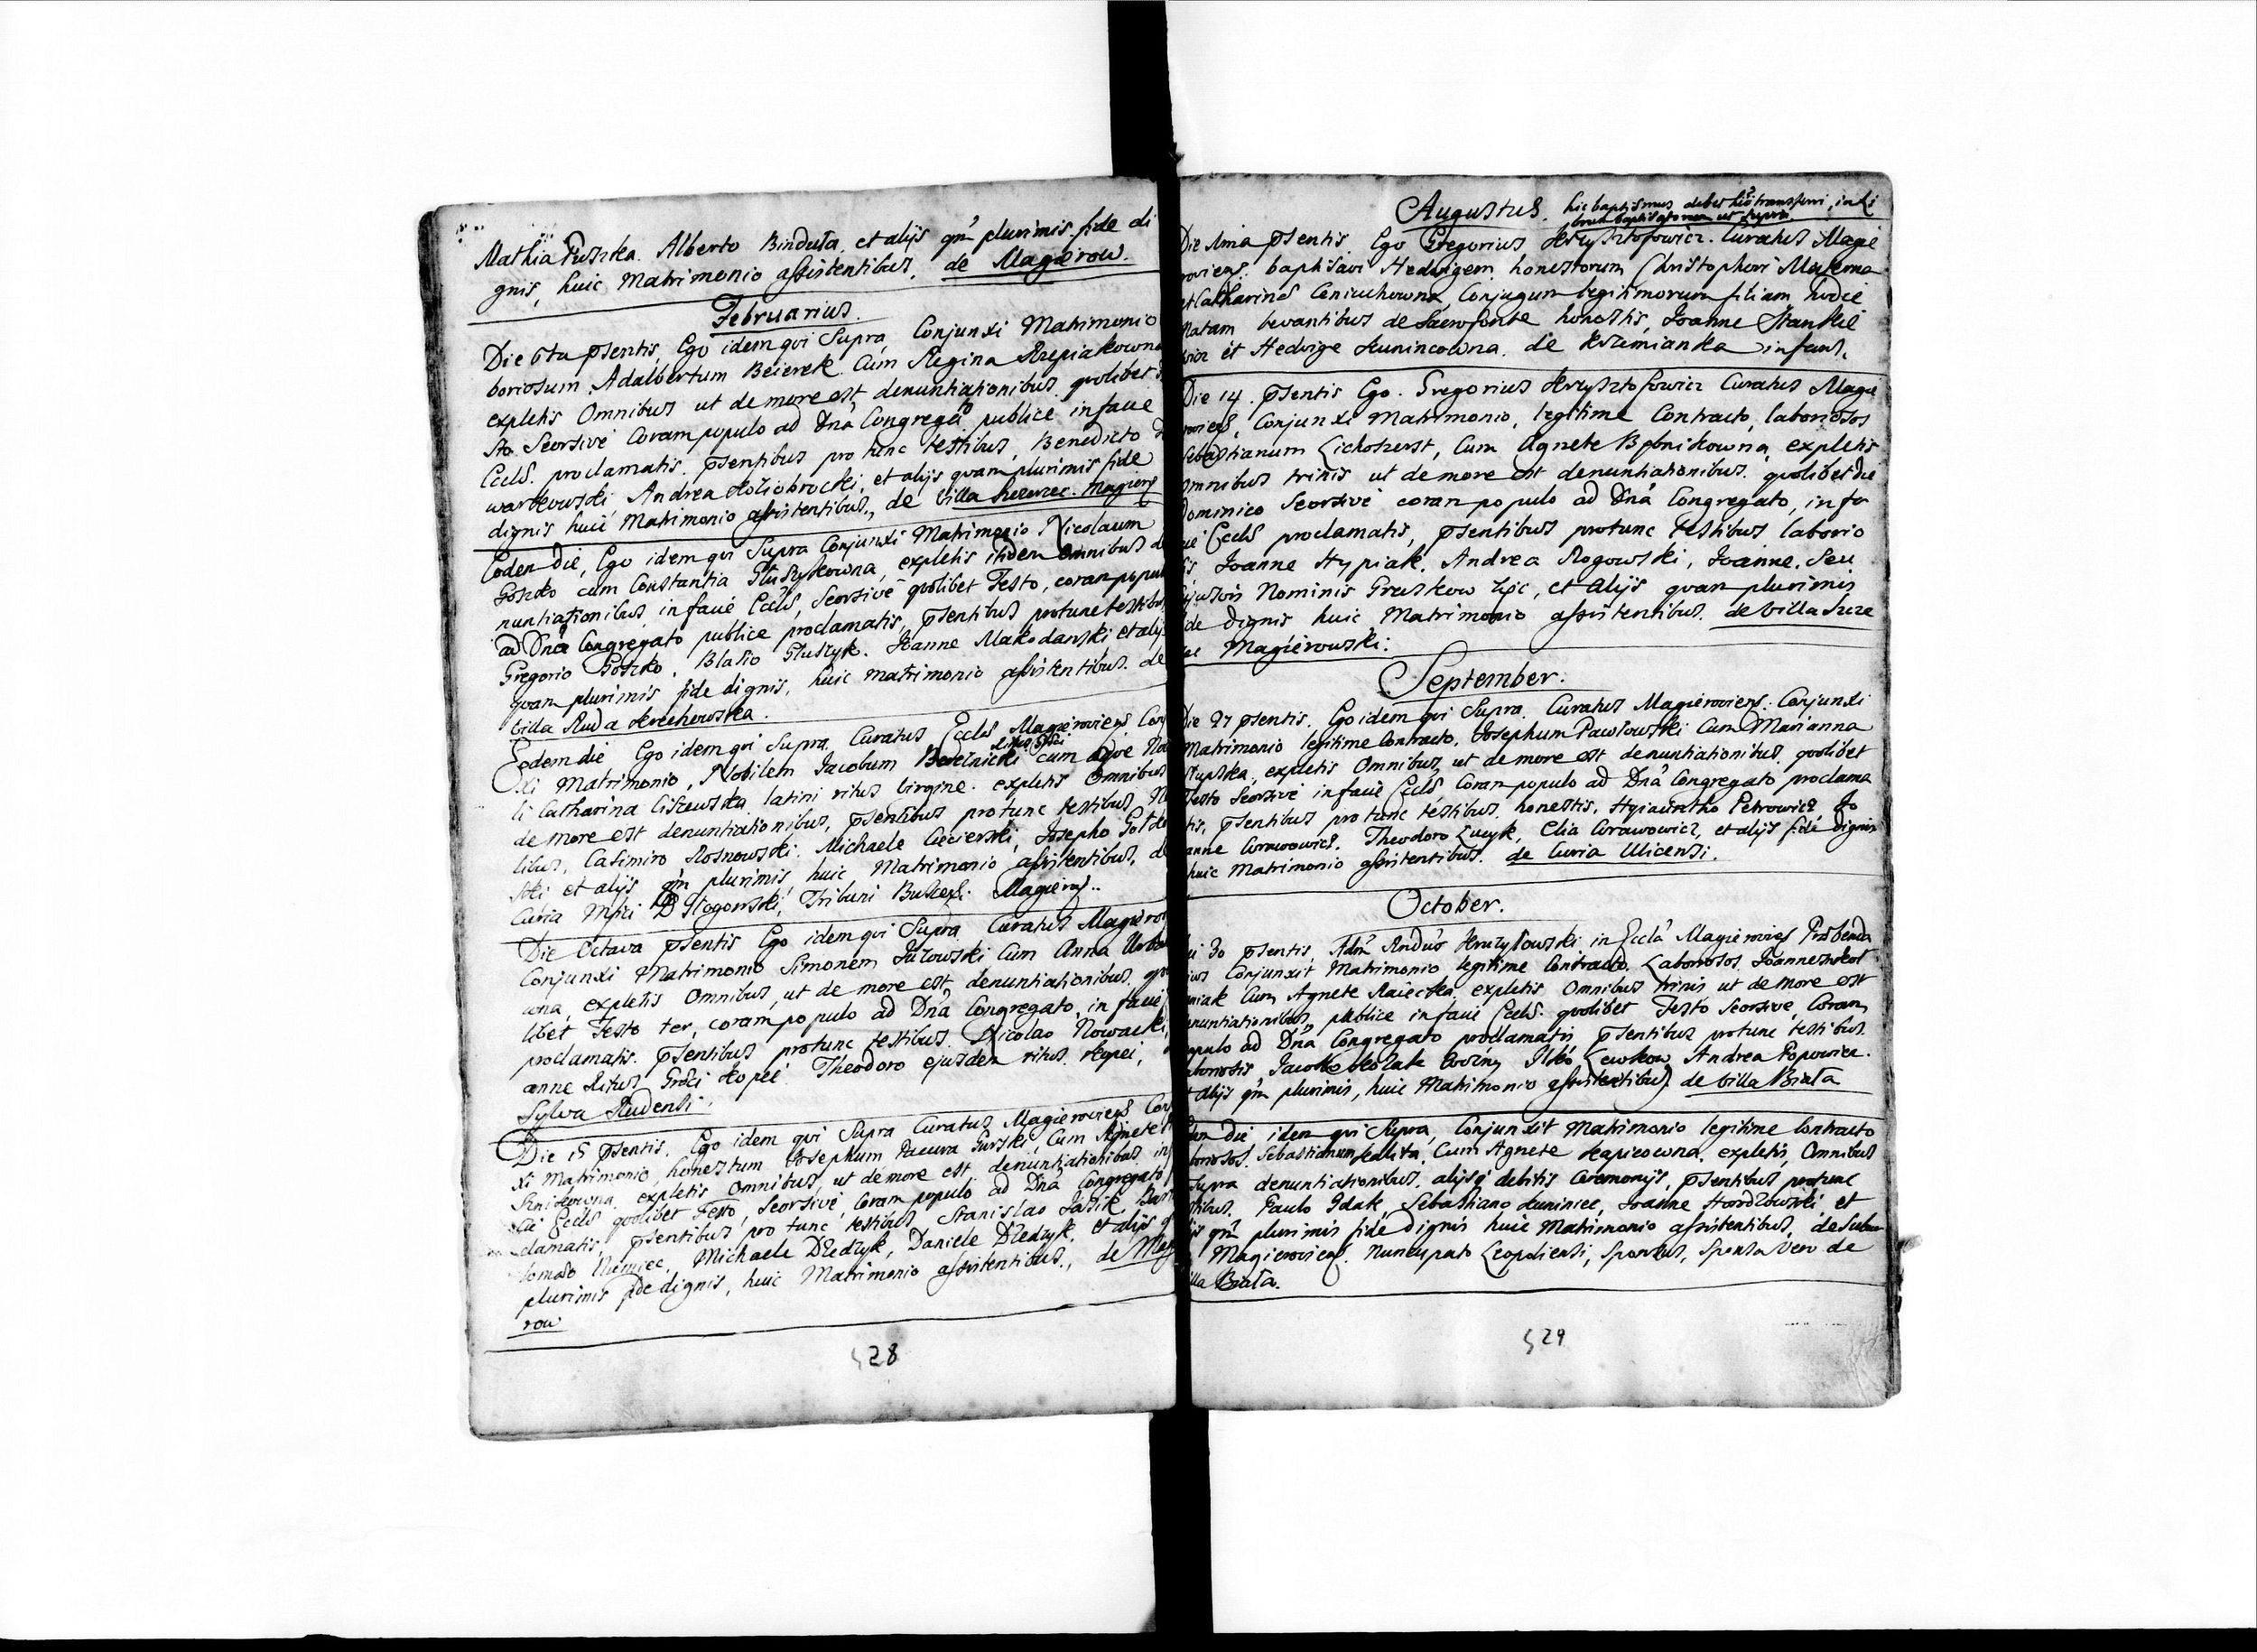 Mathia Puszka. Alberto Binduła, et alijs qm plurimis fide di
gnis, huic Matrimonio assistentibus. de Magierow.
Februarius.
Die 6ta psentis, Ego idem qvi Supra, Conjunxi Matrimonio
boriosum Adalbertum Beierek Cum Regina Rzepiakowna
expletis Omnibus ut de more est denuntiationibus qvolibet
sto Seorsive Coram populo ad Dna Congregato publice in facie
Eccls. proclamatis. psentibus pro tunc testibus, Benedicto
wartkowski Andrea Koziobrocki, et alijs qvam plurimis fide
dignis huic Matrimonio assistentibus, de Villa
Eoden die, Ego idem qvi Supra Conjunxi Matrimonio Nicolaum
Goszko cum Constantia Głuszykowna, expletis itidem Omnibus de
nuntiationibus in facie Eccls, Seorsive qvolibet Festo, coram popul
ad Dna Congregato publice proclamatis, psentibus protunc testibus
Gregorio Goszko, Blasio Głuszyk. Joanne Makodanski et alijs
qvam plurimis fide dignis, huic matrimonio assistentibus. de
Villa Ruda Krechowska.
Eodem die Ego idem qvi Supra, Curatus Eccls Magieroviens Con
xi Matrimonio, Nobilem Jacobum Ritus Grci cum aqve No
li Catharina Ciszewska latini ritus Virgine. expletis Omnibus
de more est denuntiationibus, psentibus protunc testibus No
libus, Casimiro Rosnowski. Michaele Ciecierski, Josepho Goł
ski et alijs qm plurimis huic Matrimonio assistentibus, de
Curia Mfici D Głogowski, Tribuni Buscens. Magierovs.
Die Octava psentis Ego idem qvi Supra Curatus Magierov
Conjunxi Matrimonio Simonem Juzowski Cum Anna Urba
wna, expletis Omnibus, ut de more est denuntiationibus qvo
libet Festo ter, coram populo ad Dna Congregato, in facie
proclamatis. psentibus protunc testibus. Nicolao Nowacki,
anne Ritus Grci Kopeć Theodoro ejusdem ritus Kopei,
Sylva Rudensi.
Die 15 psentis, Ego idem qvi Supra Curatus Magieroviens Con
xi Matrimonio, honestum Josephum Pacura Gurski, Cum Agnete
expletis Omnibus, ut de more est denuntiationibus in
cie Eccls qvolibet Festo, Seorsive, Coram populo ad Dna Congregato
clamatis, psentibus pro tunc testibus Stanislao Jasik, Bart
lomæo Niemiec, Michaele Dzedzyk, Daniele Dzedzyk, et alijs q
plurimis fide dignis, huic Matrimonio assistentibus, de Mag
row
528
Augustus. hic baptismus debet hic transferri, in Li
brum baptisatorum ut supra.
Die ima psentis Ego Gregorius Krzysztofowicz. Curatus Magie
roviens. baptisavi Hedvigem honestorum Christophori Materna
et Catharinæ Ceniuchowna Conjugum legitimorum filiam hodie
Natam levantibus de Sacro fonte honestis, Joanne Stankie
wicz et Hedvige Kunincowna. de Krzemianka infans.
Die 14. psentis Ego. Gregorius Krzysztofowicz Curatus Magie
roviens, Conjunxi Matrimonio, legitime Contracto, laboriosos
Sebastianum Lichoszerst, Cum Agnete expletis
omnibus trinis ut de more est denuntiationibus. qvolibet die
Dominico Seorsive coram populo ad Dna Congregato, in fa
cie Eccls proclamatis, psentibus protunc testibus laborio
sis Joanne Hypiak. Andrea Rogowski, Joanne. Seu
cujusvis Nominis Gruskow Zęc, et alijs qvam plurimis
fide dignis huic Matrimonio assistentibus. de Villa Szcze
Magierowski.
September.
Die 27 psentis. Ego idem qvi Supra. Curatus Magieroviens. Conjunxi
Matrimonio legitime Contracto. Josephum Pawlowski Cum Marianna
Słupska, expletis Omnibus, ut de more est denuntiationibus. qvolibet
Festo Seorsive in facie Eccls Coram populo ad Dna Congregato proclama
tis, psentibus pro tunc testibus honestis. Hyiacintho Petrowicz Jo
anne Corawowicz. Theodoro Lucyk, Elia Corawowicz, et alijs fide dignis
huic Matrimonio assistentibus. de Curia Ulicensi.
October.
30 psentis, Adm Rndus Kruzylowski in Eccla Magierovies Præbenda
rius Conjunxit Matrimonio, legitime Contracto. Laboriosos Joannem
niak Cum Agnete Raiecka expletis Omnibus trinis ut de more est
enuntiationibus, publice in facie Eccls. qvolibet Festo Seorsive, Coram
opulo ad Dna Congregato proclamatis psentibus protunc testibus
aboriosis Jacobo Ilko Lewkow, Andrea Popowicz.
t alijs qm plurimis, huic Matrimonio assistentibus de Villa Biała
dem die idem qvi Supra, Conjunxit Matrimonio legitime Contracto
boriosos. Sebastianum Kaluta, Cum Agnete Kapicowna. expletis, Omnibus
Supra denuntiationibus. alijsq debitis Ceremonijs, psentibus protunc
stibus. Paulo Idak, Sebastiano Kuniniec, Joanne et
ijs qm plurimis fide dignis huic Matrimonio assistentibus, de Subur
Magieroviens. nuncupato Leopoliensi, Sponsus, Sponsa vero de
illa Biała.
529